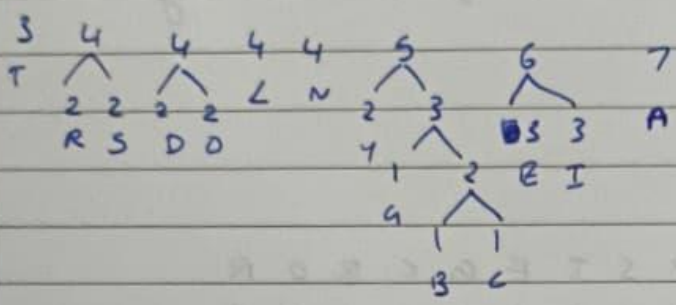 3 4 4 4 4 5 6 7
T 2 2 2 2 L N 2 3 3 3 A
R S D O Y 1 2 E I
G 1 1
B C